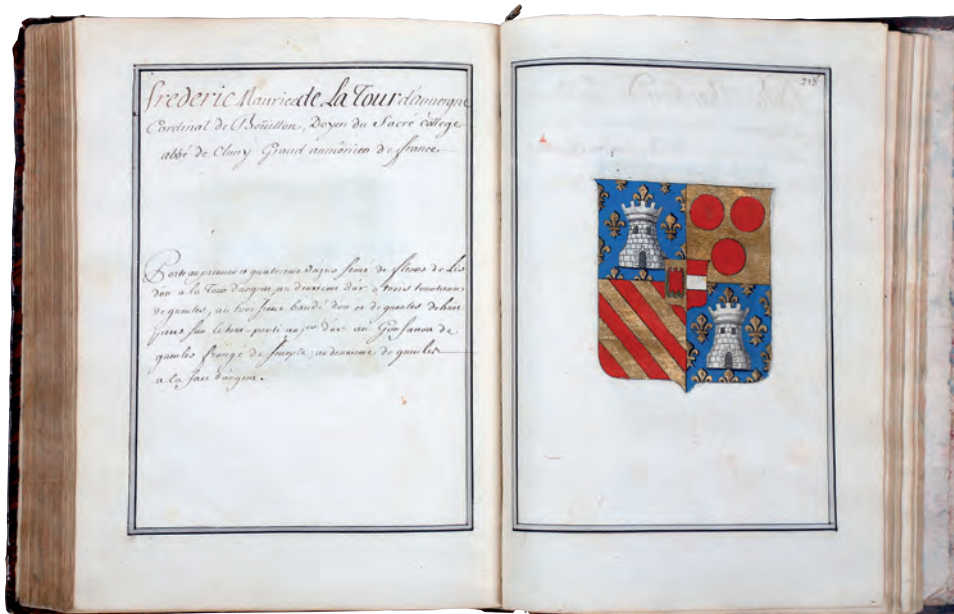 frederic Maurice de La Tour d'auuergne
Cardinal de Boüillon, Doyen du Sacré College
abbé de Cluny Grand aumônier de france
Porte au premier et quatrieme d'azur semé de fleurs de Lis
d'or a la Tour d'argent, au deuxieme d'or a trois tourteaux
de gueules, au troisieme bandé d'or et de gueules de six
pieces sur le tout parti au p.er d'or au Gonfanon de
gueules frangé de sinople, au deuxieme de gueules
a la face d'argent.
218